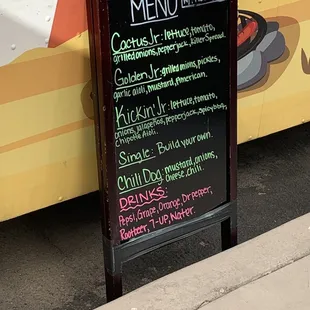 MENU
Cactus Jr: lettuce, tomato,
grilled onions, pepperjack, Killer Spread.
Golden Jr: grilled onions, pickles,
garlic aioli, mustard, American.
Kickin' Jr: lettuce, tomato,
onions, jalapeños, pepperjack, spicy
chipotle Aioli.
Single: Build your own.
Chili Dog: mustard, onions,
cheese, chili.
DRINKS:
Pepsi, Grape, Orange, Dr pepper,
Rootbeer, 7-UP, Water.